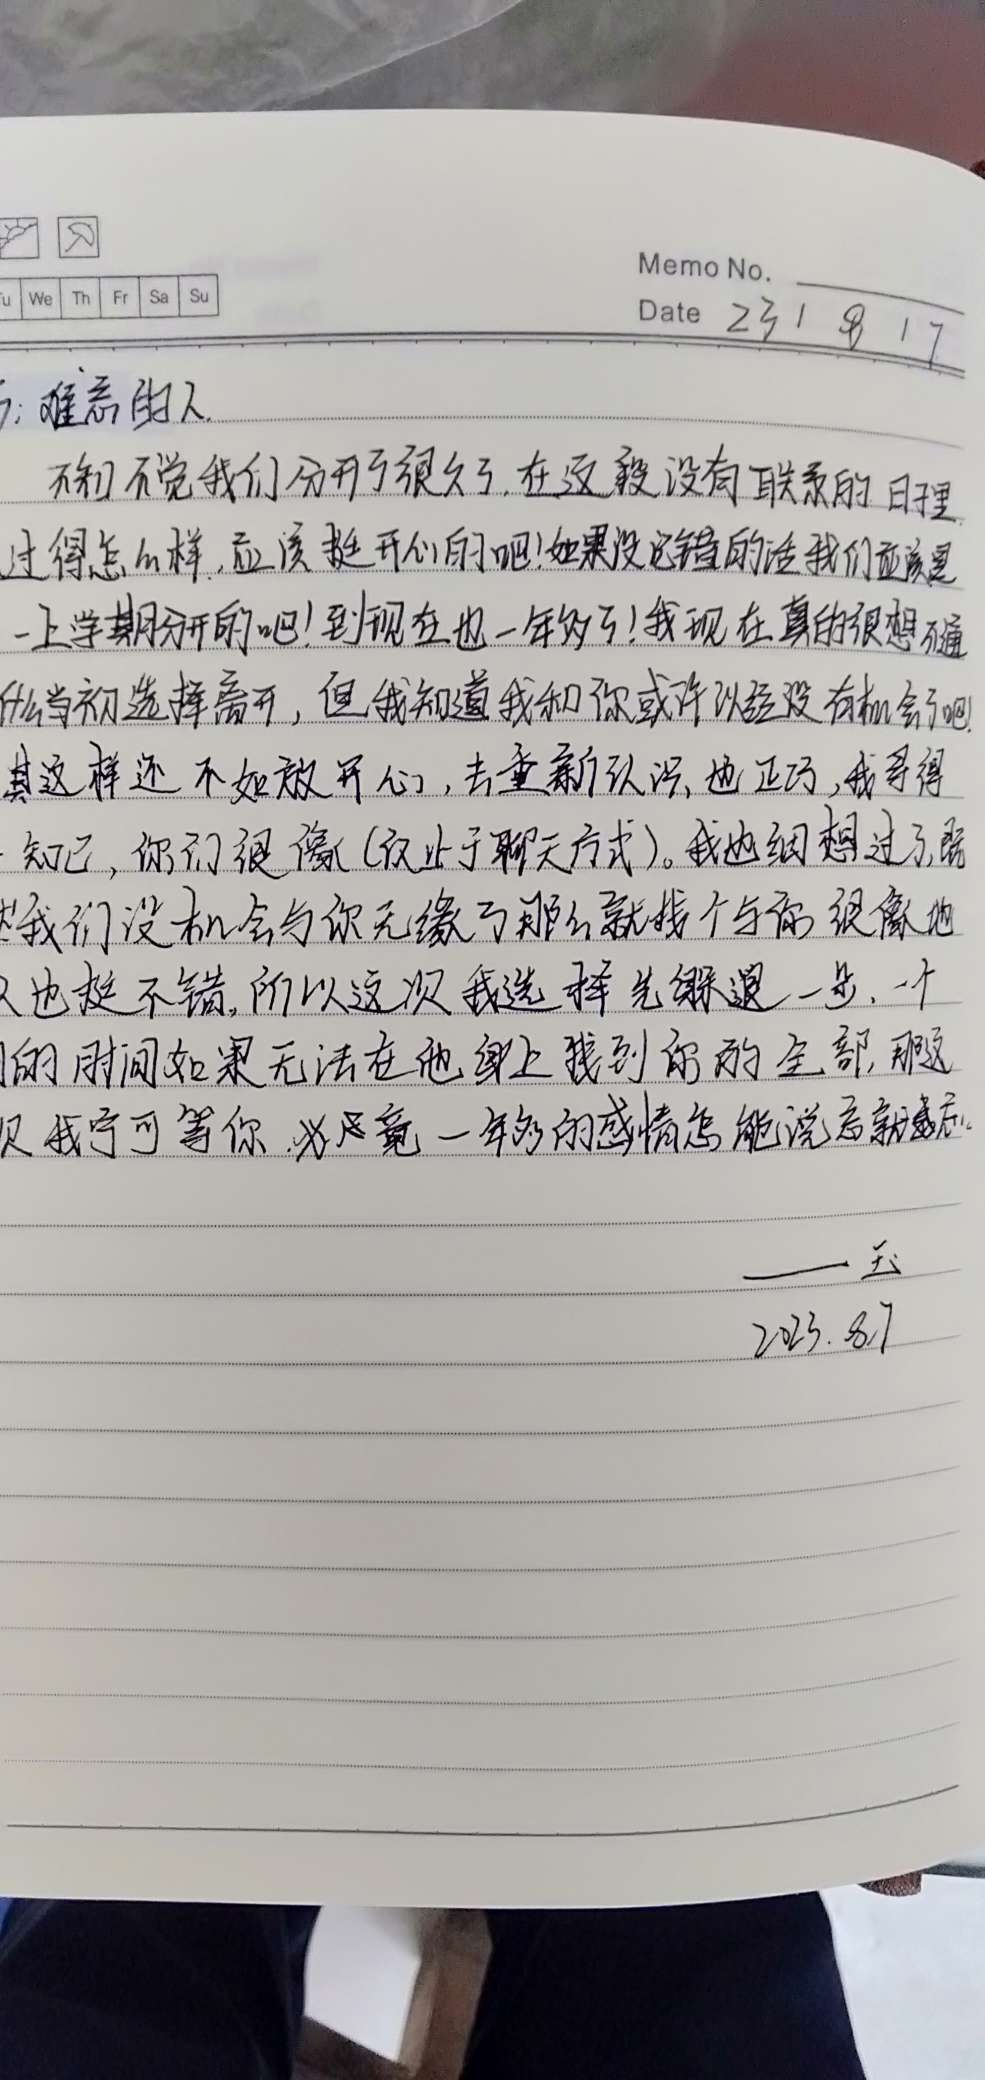 We Th Fr Sa Su
Memo No.
Date 23 / 8 / 7
: 难忘的人.
不知不觉我们分开了很久了.在这段没有联系的日子里
过得怎么样.应该挺开心的吧!如果没记错的话我们应该是
一上学期分开的吧!到现在也一年多了!我现在真的很想不通
什么当初选择离开,但我知道我和你或许以经没有机会了吧!
其这样还不如放开心,去重新认识,也正巧,我寻得
一知己,你们很像(仅止于聊天方式)。我也细想过了,既
然我们没机会与你无缘了那么就找个与你很像地
人也挺不错,所以这次我选择先躲退一步、一个
的时间如果无法在他身上找到你的全部,那这
次我宁可等你.必尽竟一年多的感情怎能说忘就忘.
—— 玉
2023.8.7